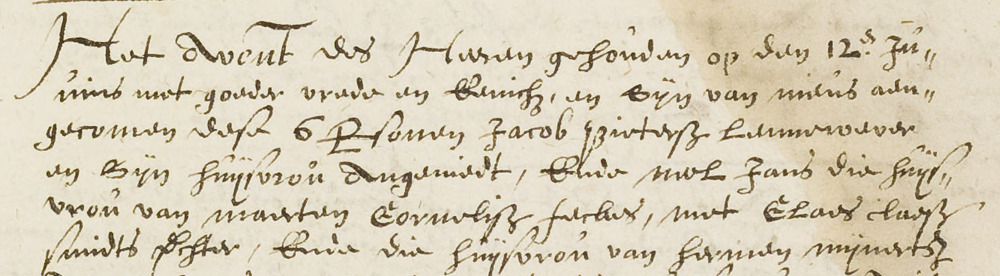 Het Avont des Heeren gehouden op den 12e Ju„
nius met goeder vrede en Eenich. en Syn van nieus aen„
gecomen dese 6 Psonen Jacob pietersz Lennewever
en Syn huijsvrou Angeniedt, Ende Mel Jans die huijs„
vrou van maerten Cornelisz feckes, met Claes claesz
smidts Echter, Ende die huijsvrou van hermen mijnertsz